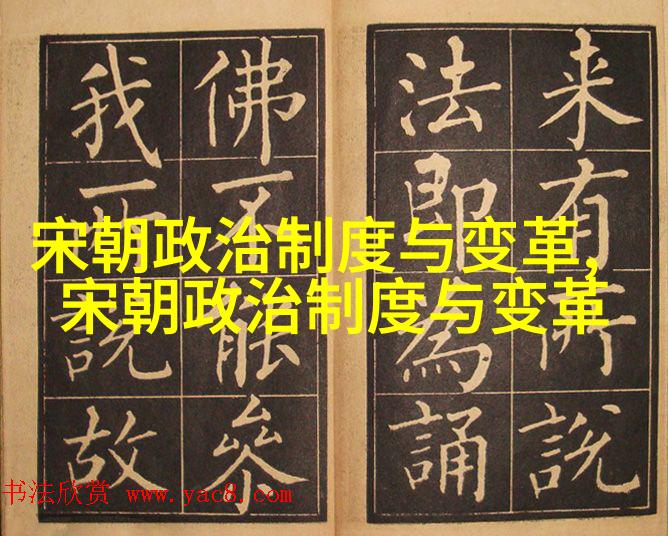 来有所說
法即為誦
佛不能叅
我所說故
宋朝政治制度与变革,
宋朝政治制度与变革
书法欣赏 www.yac8.com